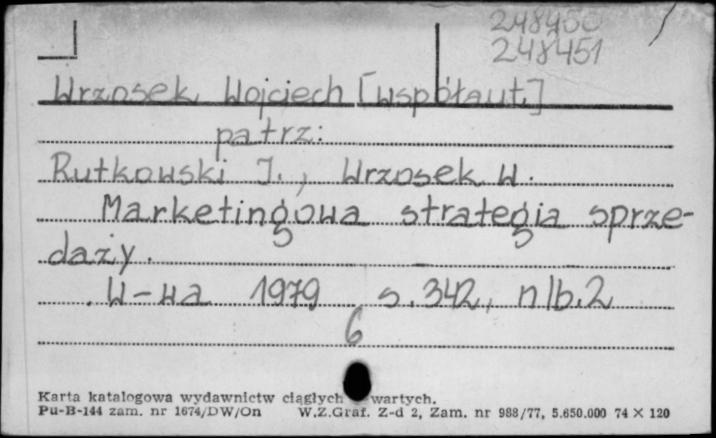 248450
248451
Wrzosek Wojciech [współaut.]
patrz:
Rutkowski I., Wrzosek W.
Marketingowa strategia sprze-
daży.
W-wa 1979 s. 342, nlb. 2
6
Karta katalogowa wydawnictw ciągłych wartych.
Pu-B-144 zam. nr 1674/DW/On W.Z.Graf. Z-d 2, Zam. nr 988/77, 5.650.000 74 X 120